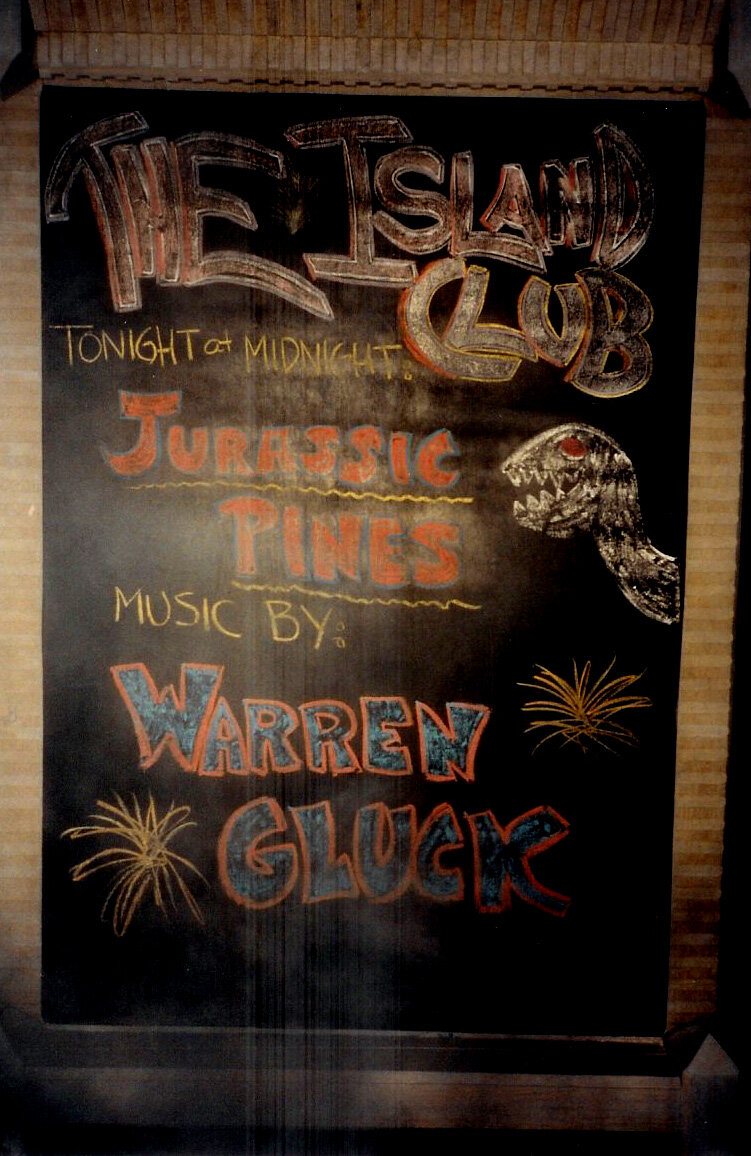 THE ISLAND
CLUB
TONIGHT at MIDNIGHT:
JURASSIC
PINES
MUSIC BY:
WARREN
GLUCK